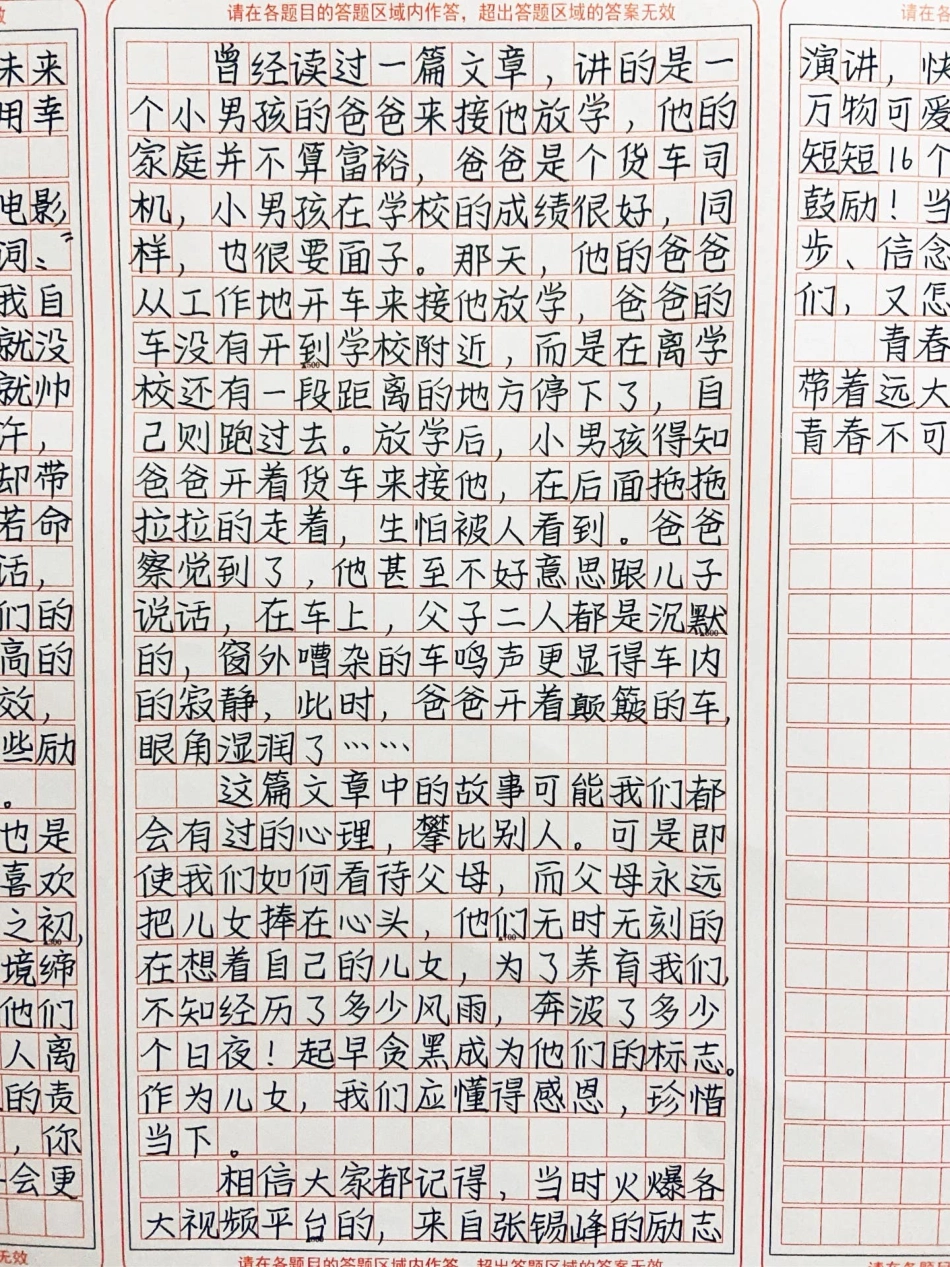 效
未来
用幸
电影,
词:“
我自
就没
就帅
许，
却带
若命
话，
们的
高的
效，
些励
。
也是
喜欢
之初,
境缔
他们
人离
的责
，你
会更
无效
请在各题目的答题区域内作答，超出答题区域的答案无效
曾经读过一篇文章，讲的是一
个小男孩的爸爸来接他放学，他的
家庭并不算富裕，爸爸是个货车司
机，小男孩在学校的成绩很好，同
样，也很要面子。那天，他的爸爸
从工作地开车来接他放学，爸爸的
车没有开到学校附近，而是在离学
校还有一段距离的地方停下了，自
己则跑过去。放学后，小男孩得知
爸爸开着货车来接他，在后面拖拖
拉拉的走着，生怕被人看到。爸爸
察觉到了，他甚至不好意思跟儿子
说话，在车上，父子二人都是沉默
的，窗外嘈杂的车鸣声更显得车内
的寂静，此时，爸爸开着颠簸的车,
眼角湿润了……
这篇文章中的故事可能我们都
会有过的心理，攀比别人。可是即
使我们如何看待父母，而父母永远
把儿女捧在心头，他们无时无刻的
在想着自己的儿女，为了养育我们,
不知经历了多少风雨，奔波了多少
个日夜！起早贪黑成为他们的标志。
作为儿女，我们应懂得感恩，珍惜
当下。
相信大家都记得，当时火爆各
大视频平台的，来自张锡峰的励志
请在各题目的答题区域内作答，超出答题区域的答案无效
请在各
演讲，快
万物可爱
短短16个
鼓励！当
步、信念
们，又怎
青春
带着远大
青春不可